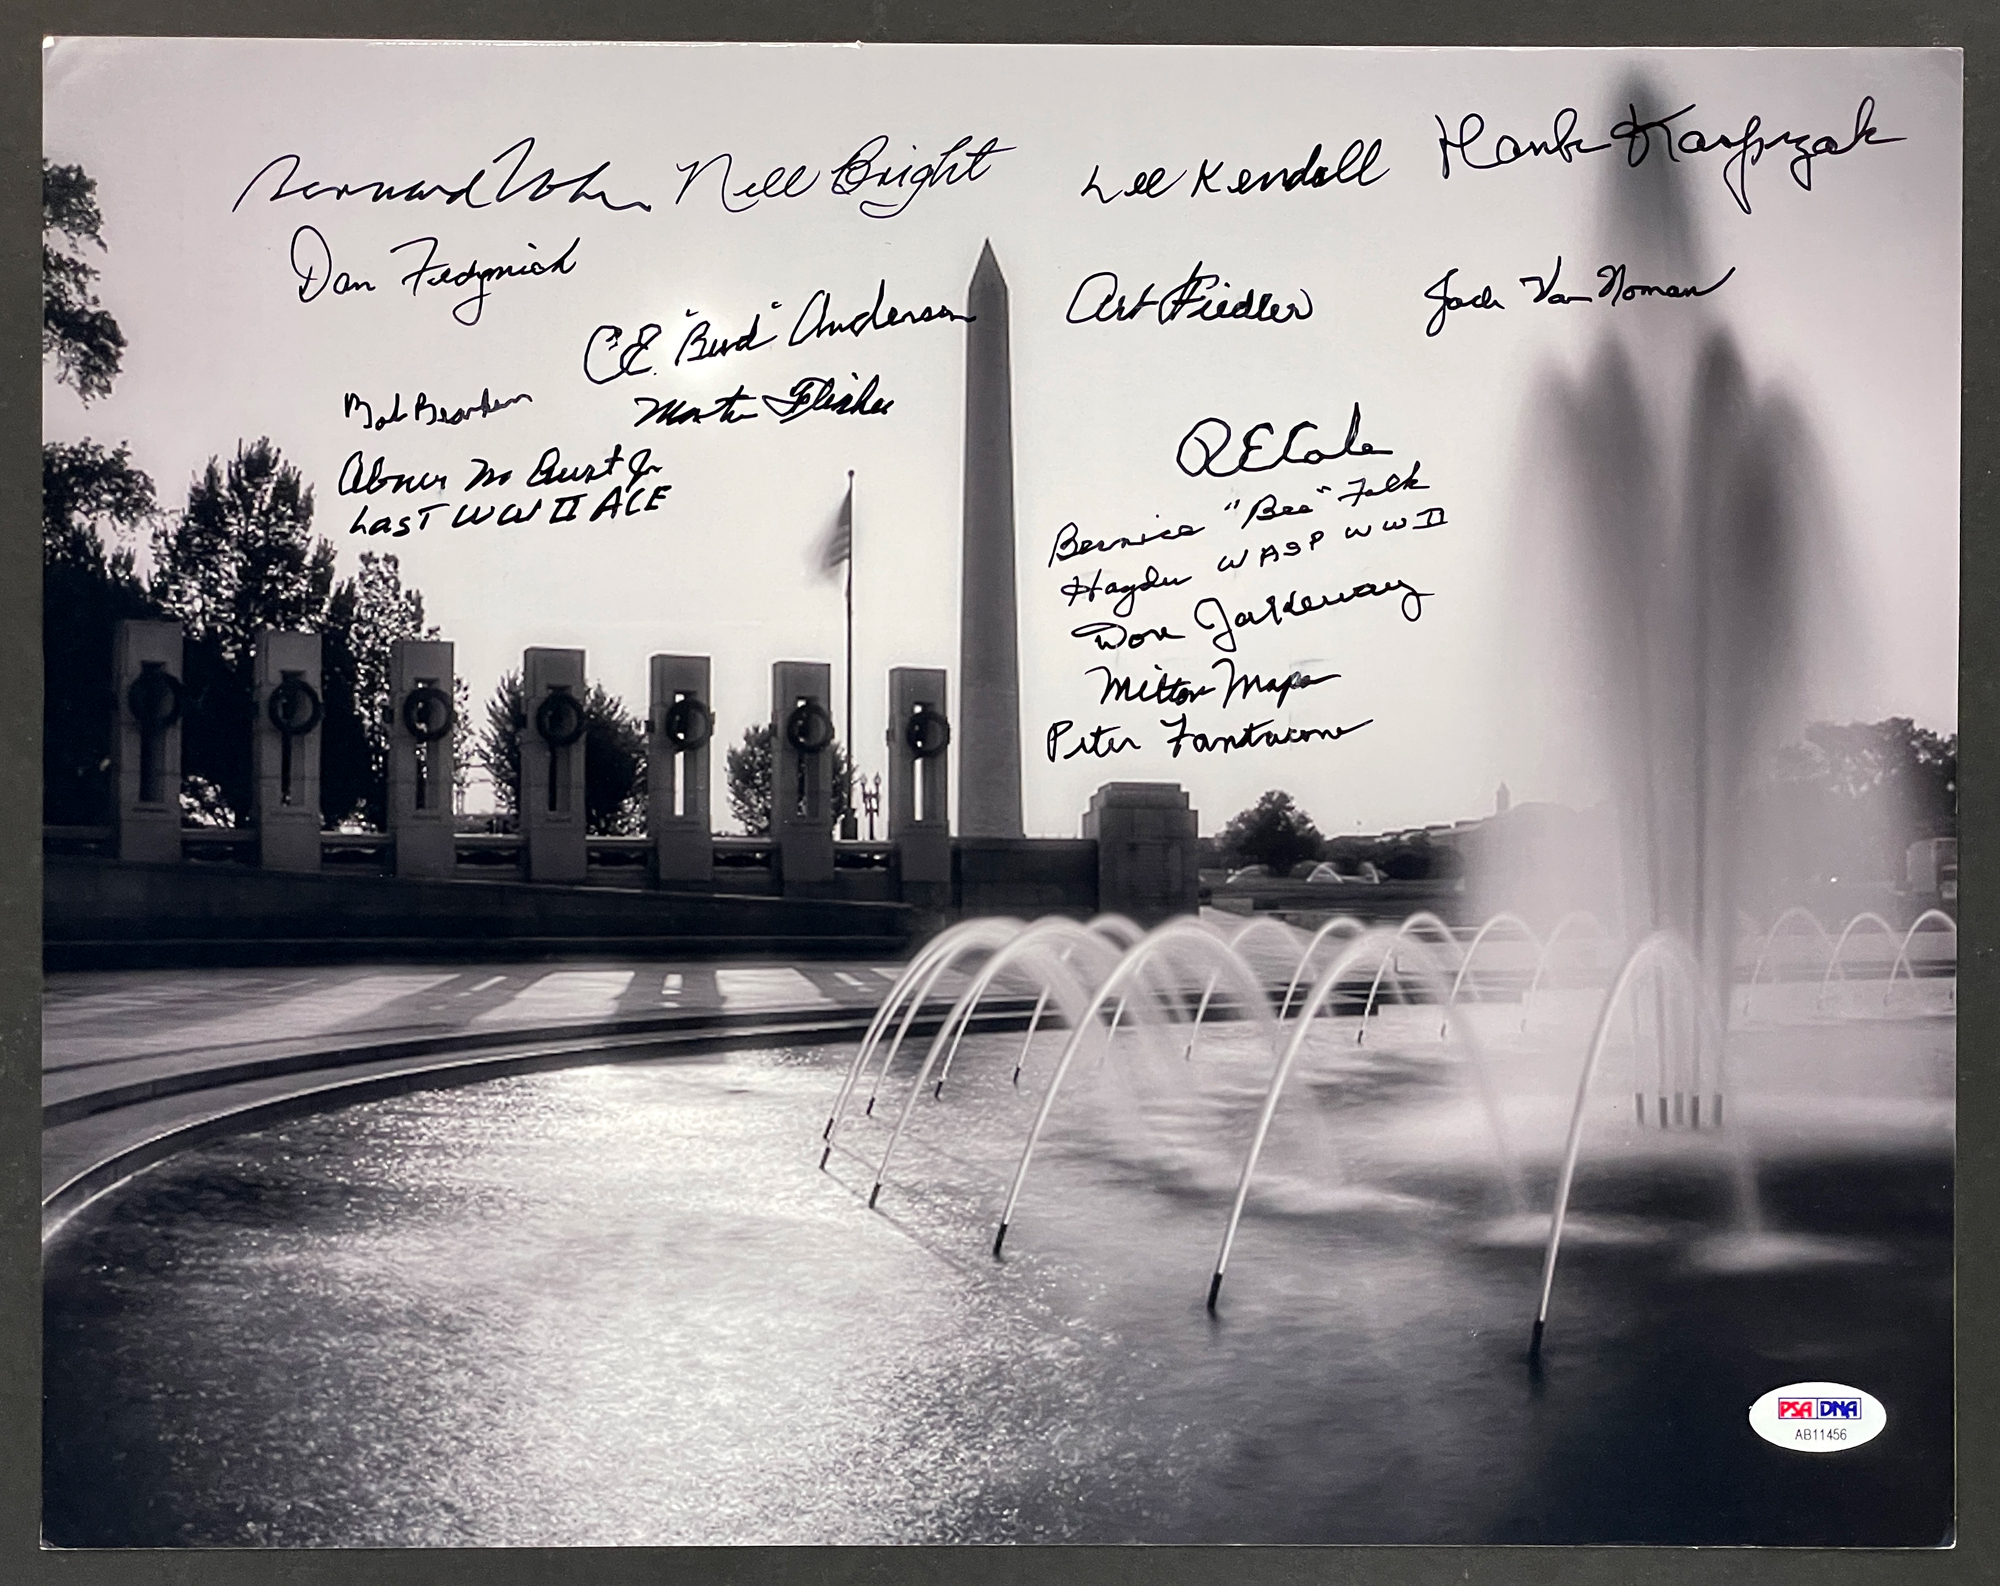 Bernard
Nell Bright
Lee Kendall
Hank Kasprzak
Dan Fedynich
C.E. "Bud" Anderson
Art Fiedler
Jack Van Noman
Bob
Martin
Abner M Aust Jr
Last WW II ACE
R E Cole
Bernice "Bee" Falk
Haydu WASP WW II
Don Jakeway
Milton Mapa
Peter Fantacone
PSA DNA
AB11456